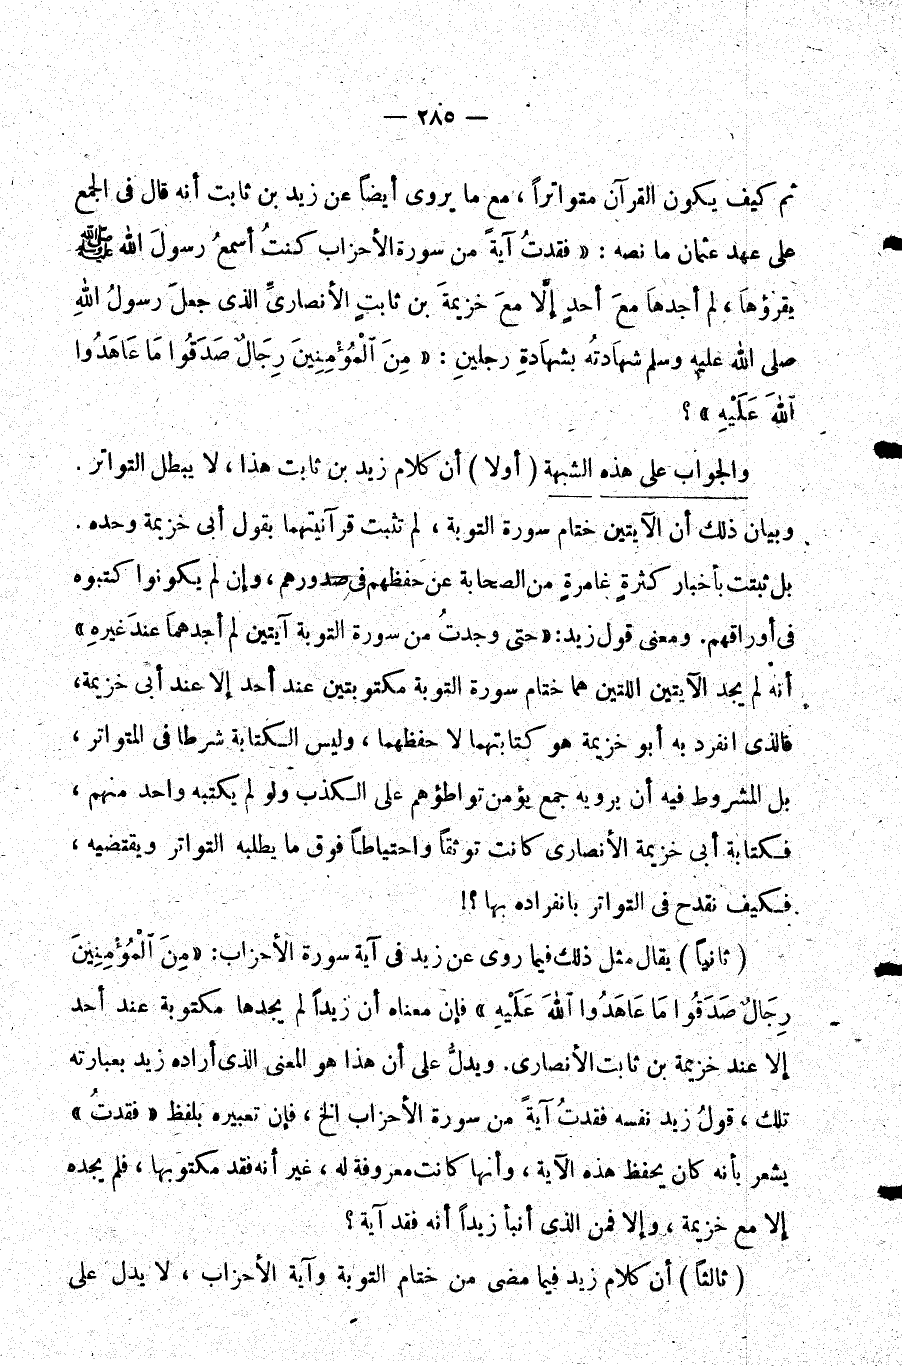 — ٢٨٥ —
ثم كيف يكون القرآن متواتراً ، مع ما يروى أيضاً عن زيد بن ثابت أنه قال فى الجمع
على عهد عثمان ما نصه : « فقدتُ آيةً من سورة الأحزاب كنتُ أسمعُ رسولَ الله ﷺ
يقرؤهَا ، لم أجدهاَ معَ أحدٍ إلَّا معَ خزيمةَ بن ثابتٍ الأنصارىِّ الذى جعلَ رسولُ اللهِ
صلى الله عليه وسلم شهادتهُ بشهادةِ رجلينِ : « مِنَ ٱلْمُؤْمِنِينَ رِجَالٌ صَدَقُوا مَا عَاهَدُوا
ٱللهَ عَلَيْهِ » ؟
والجواب على هذه الشبهة ( أولا ) أن كلام زيد بن ثابت هذا ، لا يبطل التواتر .
وبيان ذلك أن الآيتين ختام سورة التوبة ، لم تثبت قرآنيتهما بقول أبى خزيمة وحده .
بل ثبتت بأخبار كثرةٍ غامرةٍ من الصحابة عن حفظهم فى صدورهم ، وإن لم يكونوا كتبوه
فى أوراقهم. ومعنى قول زيد: «حتى وجدتُ من سورة التوبة آيتين لم أجدهماَ عندَ غيرهِ »
أنه لم يجد الآيتين اللتين هما ختام سورة التوبة مكتوبتين عند أحد إلا عند أبى خزيمة،
فالذى انفرد به أبو خزيمة هو كتابتهما لا حفظهما ، وليس الكتابة شرطا فى المتواتر ،
بل المشروط فيه أن يرويه جمع يؤمن تواطؤهم على الكذب ولو لم يكتبه واحد منهم ،
فكتابة أبى خزيمة الأنصارى كانت توثقاً واحتياطاً فوق ما يطلبه التواتر ويقتضيه ،
فكيف نقدح فى التواتر بانفراده بها ؟!
( ثانياً ) يقال مثل ذلك فيما روى عن زيد فى آية سورة الأحزاب: «مِنَ ٱلْمُؤْمِنِينَ
رِجَالٌ صَدَقُوا مَا عَاهَدُوا ٱللهَ عَلَيْهِ » فإن معناه أن زيداً لم يجدها مكتوبة عند أحد
إلا عند خزيمة بن ثابت الأنصارى. ويدلُّ على أن هذا هو المعنى الذى أراده زيد بعبارته
تلك ، قولُ زيد نفسه فقدتُ آيةً من سورة الأحزاب الخ ، فإن تعبيره بلفظ « فقدتُ »
يشعر بأنه كان يحفظ هذه الآية ، وأنها كانت معروفة له ، غير أنه فقد مكتوبها ، فلم يجده
إلا مع خزيمة ، وإلا فمن الذى أنبأ زيداً أنه فقد آية ؟
( ثالثاً ) أن كلام زيد فيما مضى من ختام التوبة وآية الأحزاب ، لا يدل على